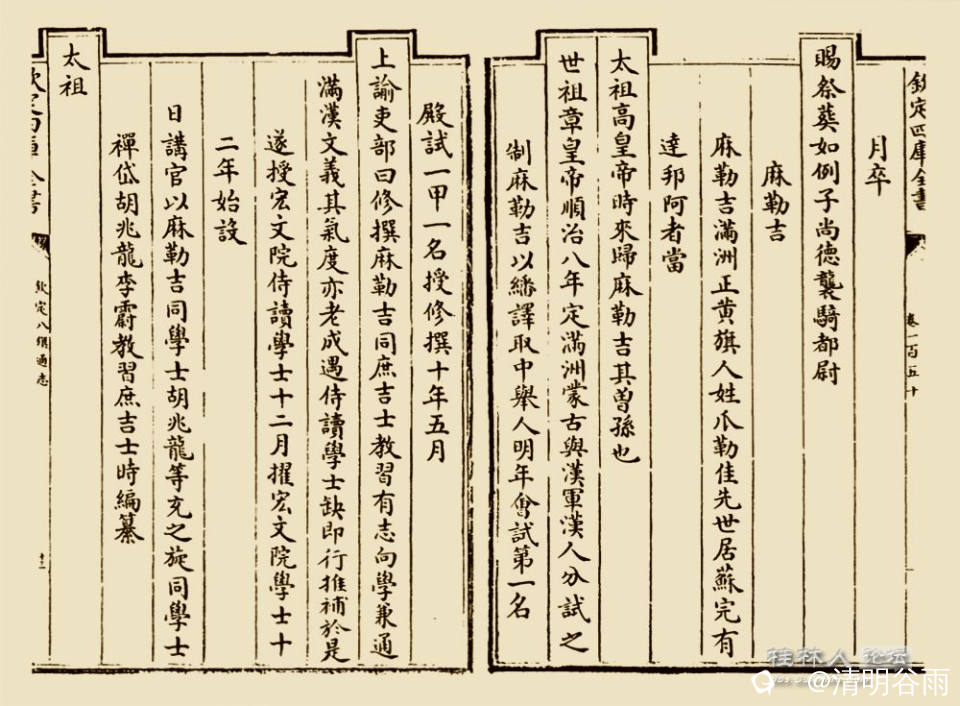 欽定四庫全書
卷一百五十
月卒
賜祭葬如例子尚德襲騎都尉
麻勒吉
麻勒吉滿洲正黃旗人姓爪勒佳先世居蘇完有
達邦阿者當
太祖高皇帝時來歸麻勒吉其曾孫也
世祖章皇帝順治八年定滿洲蒙古與漢軍漢人分試之
制麻勒吉以繙譯取中舉人明年會試第一名
殿試一甲一名授修撰十年五月
上諭吏部曰修撰麻勒吉同庶吉士教習有志向學兼通
滿漢文義其氣度亦老成遇侍讀學士缺即行推補於是
遂授宏文院侍讀學士十二月擢宏文院學士十
二年始設
日講官以麻勒吉同學士胡兆龍等充之旋同學士
禪岱胡兆龍李霨教習庶吉士時編纂
太祖
欽定四庫全書
欽定八旗通志
十二
桂林人 论坛
@清明谷雨